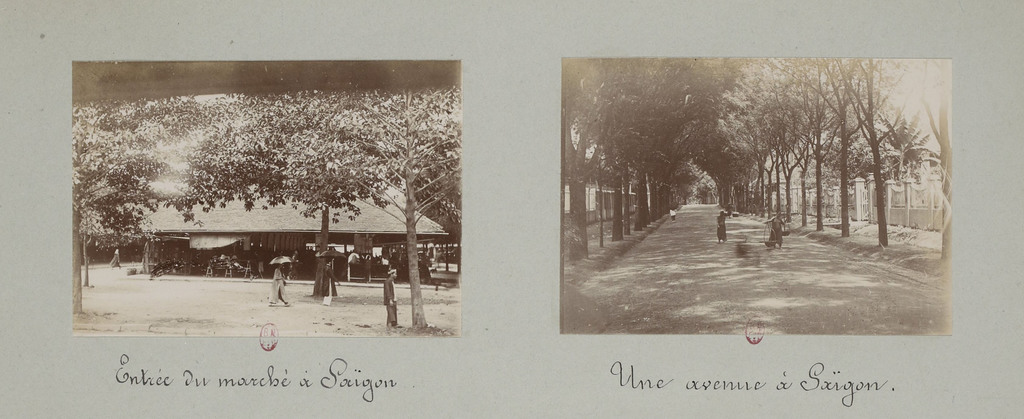 Entrée du marché à Saïgon.
Une avenue à Saïgon.